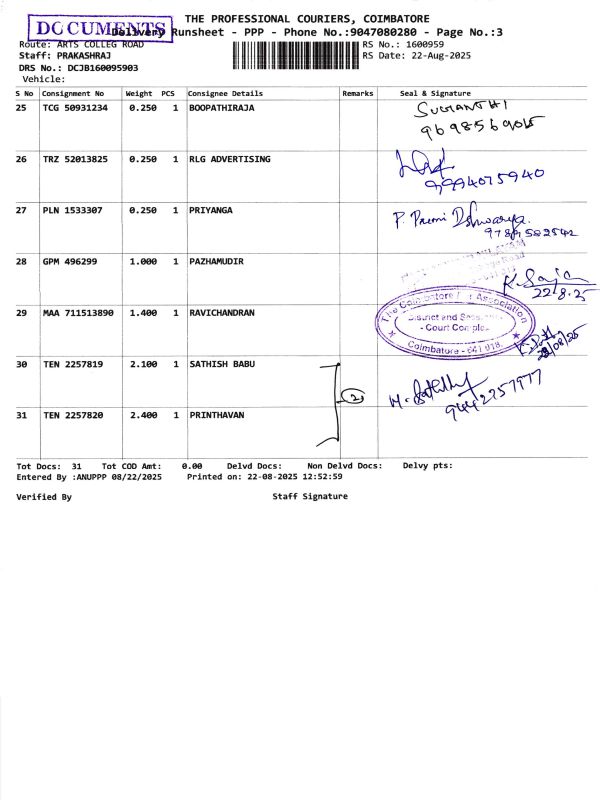 THE PROFESSIONAL COURIERS, COIMBATORE
DOCUMENTS
Delivery Runsheet - PPP - Phone No.:9047080280 - Page No.:3
Route: ARTS COLLEG ROAD RS No.: 1600959
Staff: PRAKASHRAJ RS Date: 22-Aug-2025
DRS No.: DCJB160095903
Vehicle:
S No Consignment No Weight PCS Consignee Details Remarks Seal & Signature
25 TCG 50931234 0.250 1 BOOPATHIRAJA
26 TRZ 52013825 0.250 1 RLG ADVERTISING
9994075940
27 PLN 1533307 0.250 1 PRIYANGA
28 GPM 496299 1.000 1 PAZHAMUDIR
22.8.25
29 MAA 711513890 1.400 1 RAVICHANDRAN
The Coimbatore Association
District and
Court Complex
Coimbatore - 641 018.
30 TEN 2257819 2.100 1 SATHISH BABU
2
9442257977
31 TEN 2257820 2.400 1 PRINTHAVAN
Tot Docs: 31 Tot COD Amt: 0.00 Delvd Docs: Non Delvd Docs: Delvy pts:
Entered By :ANUPPP 08/22/2025 Printed on: 22-08-2025 12:52:59
Verified By Staff Signature